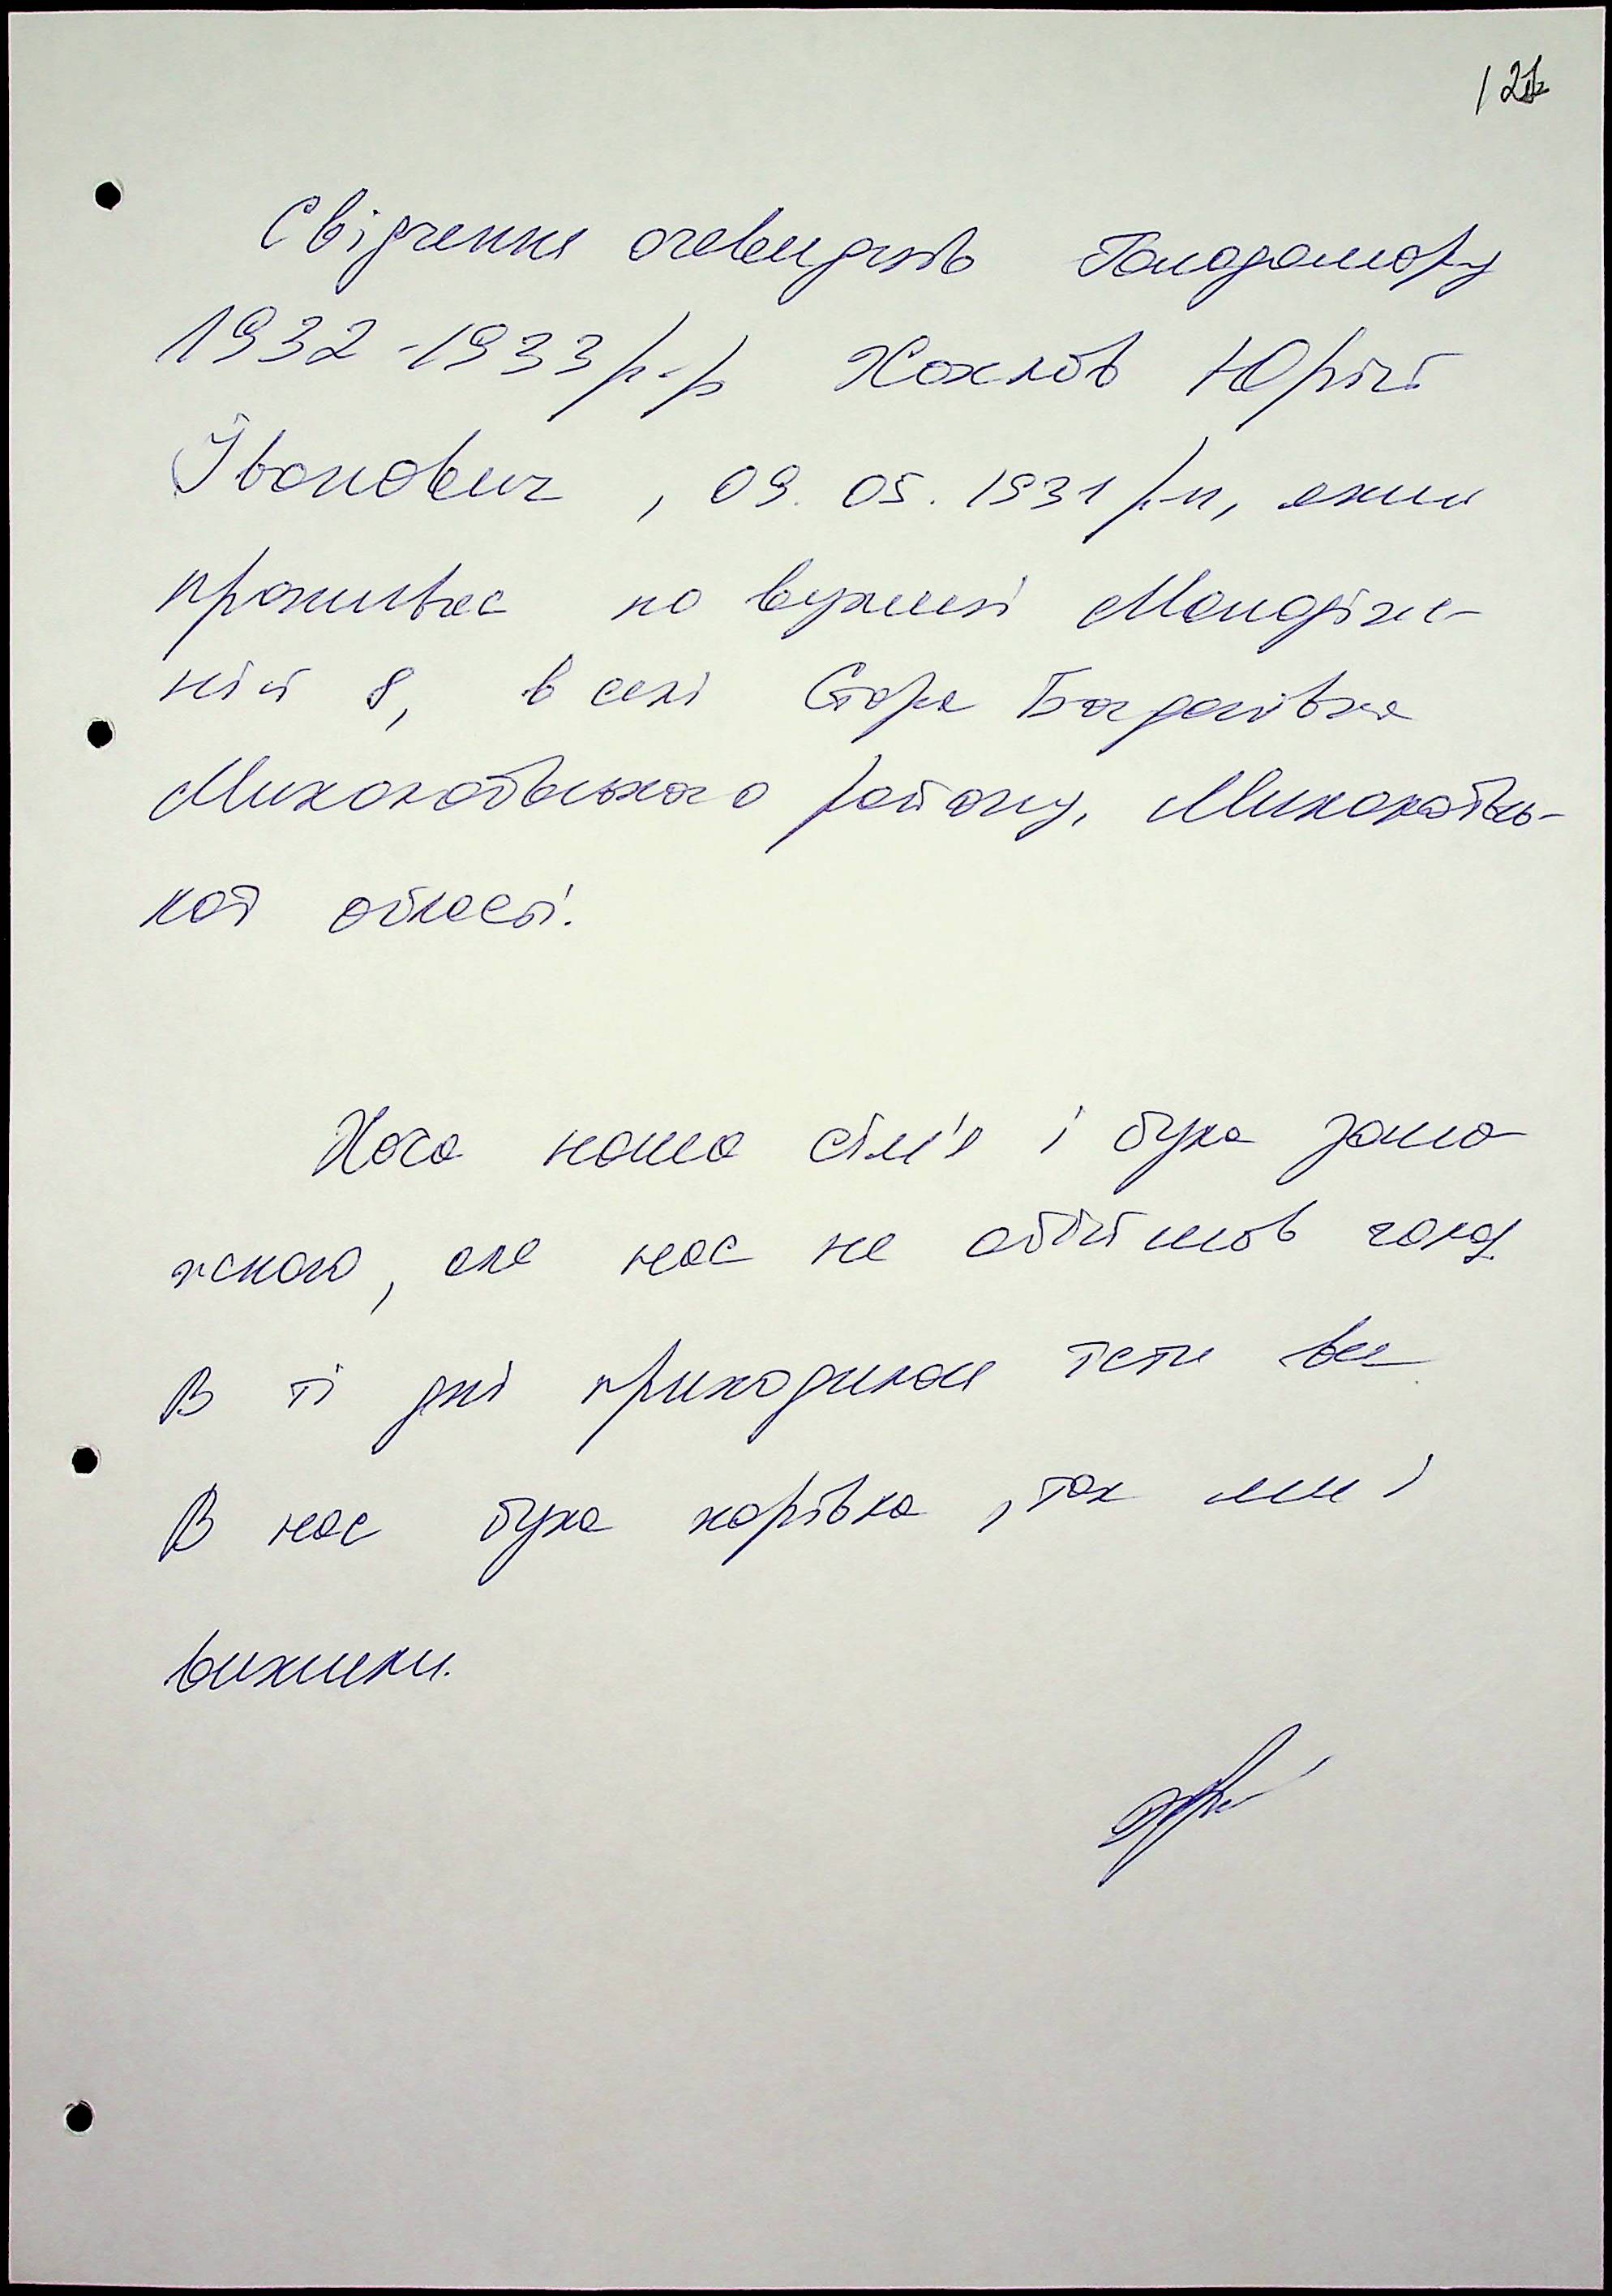 Свідчення очевидців Голодомору
1932-1933 р-р Хохлов Юрій
Іванович, 09.05.1931 р-н, який
проживає по вулиці Молодіж-
ній 8, в селі Стара Богданівка
Миколаївського району, Миколаївсь-
кої області.
Хоча наша сім'я і була замо-
жною, але нас не обійшов голод.
В ті дні приходилося їсти все
В нас була корівка, так ми і
вижили.